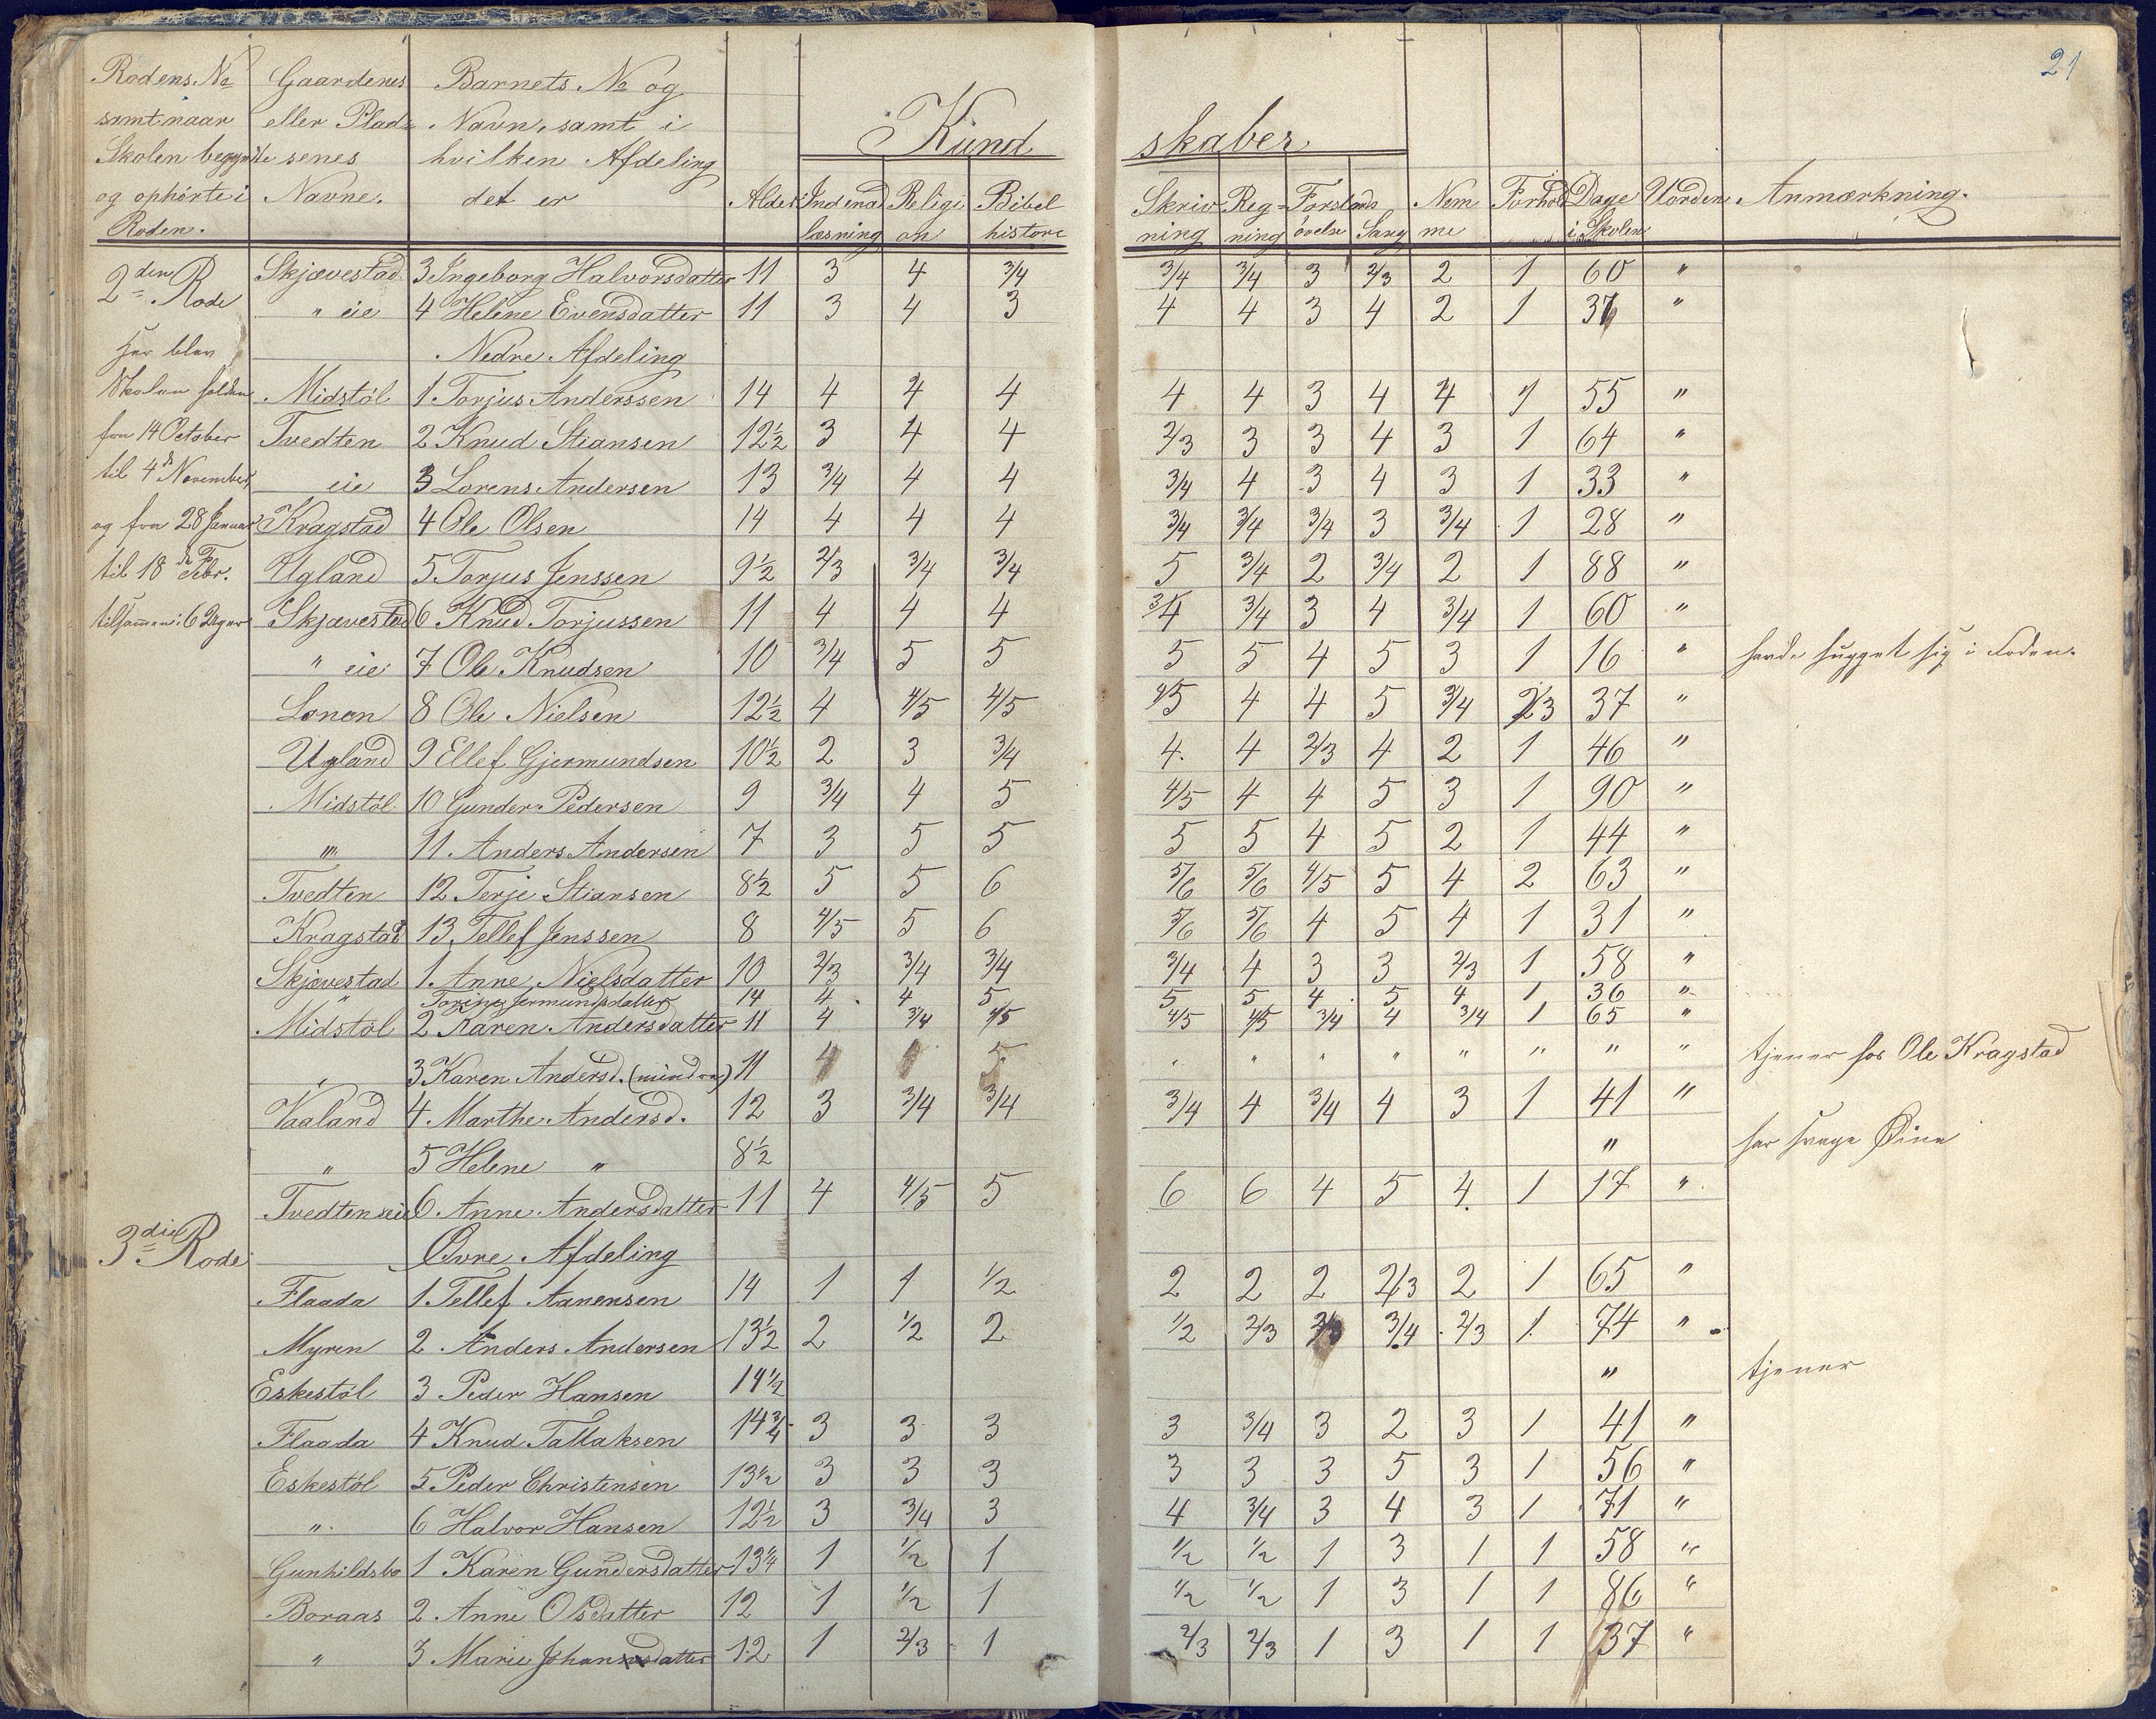 21
Rodens No Gaardenes Barnets No og
samt naar eller Plad= Navn, samt i Kund skaber
Skolen begyndte senes hvilken Afdeling
og ophørte i Navne. det er Alder Indenad Religi Bibel Skriv Reg= Forstands Nem Forhold Dage Uorden Anmærkning.
Roden. læsning on historie ning ning øvelse Sang me i Skolen
2den Rode Skjævestad 3 Ingeborg Halvorsdatter 11 3 4 3/4 3/4 3/4 3 2/3 2 1 60 "
" eie 4 Helene Evensdatter 11 3 4 3 4 4 3 4 2 1 "
Her blev Nedre Afdeling
Skolen holden Midstöl 1. Torjus Anderssen 14 4 4 4 4 4 3 4 4 1 55 "
fra 14 October Tvedten 2 Knud Stiansen 12½ 3 4 4 2/3 3 3 4 3 1 64 "
til 4de November, eie 3 Lorens Andersen 13 3/4 4 4 3/4 4 3 4 3 1 33 "
og fra 28 Januar Kragstad 4 Ole Olsen 14 4 4 4 3/4 3/4 3/4 3 3/4 1 28 "
til 18de Febr. Ugland 5 Torjus Jenssen 9½ 2/3 3/4 3/4 5 3/4 2 3/4 2 1 88 "
tilsammen: 6 Uger Skjævestad 6 Knud Torjussen 11 4 4 4 3/4 3/4 3 4 3/4 1 60 "
" eie 7 Ole Knudsen 10 3/4 5 5 5 5 4 5 3 1 16 " havde hugget sig i Foden.
Lonen 8 Ole Nielsen 12½ 4 4/5 4/5 4/5 4 4 5 3/4 2/3 37 "
Ugland 9 Ellef Gjermundsen 10½ 2 3 3/4 4. 4 2/3 4 2 1 46 "
Midstöl 10 Gunder Pedersen 9 3/4 4 5 4/5 4 4 5 3 1 90 "
"" 11. Anders Andersen 7 3 5 5 5 5 4 5 2 1 44 "
Tvedten 12 Terje Stiansen 8½ 5 5 6 5/6 5/6 4/5 5 4 2 63 "
Kragstad 13 Tellef Jenssen 8 4/5 5 6 5/6 5/6 4 5 4 1 31 "
Skjævestad 1. Anne Nielsdatter 10 2/3 3/4 3/4 3/4 4 3 3 2/3 1 58 "
" Torine Jermundsdatter 14 4 4 5 5 5 4 5 4 1 36 "
Midstöl 2 Karen Andersdatter 11 4 3/4 4/5 4/5 4/5 3/4 4 3/4 1 65 "
" 3 Karen Andersd. (mindre) 11 " " " " " " " " tjener hos Ole Kragstad
Vaaland 4. Marthe Andersd. 12 3 3/4 3/4 3/4 4 3/4 4 3 1 41 "
" 5 Helene " 8½ " har svage Øine
Tvedten eie 6 Anne Andersdatter 11 4 4/5 5 6 6 4 5 4. 1 17 "
3die Rode Øvre Afdeling
Flaada 1. Tellef Aanensen 14 1 1 1/2 2 2 2 2/3 2 1 65 "
Myren 2 Anders Andersen 13½ 2 1/2 2 1/2 2/3 2/3 3/4 2/3 1 74 "
Eskestöl 3 Peder Hansen 14½ " tjener
Flaada 4 Knud Tallaksen 14¾ 3 3 3 3 3/4 3 2 3 1 41 "
Eskestöl 5 Peder Christensen 13½ 3 3 3 3 3 3 5 3 1 56 "
" 6 Halvor Hansen 12½ 3 3/4 3 4 3/4 3 4 3 1 71 "
Gunhildsbo 1 Karen Gundersdatter 13¼ 1 1/2 1 1/2 1/2 1 3 1 1 58 "
Boraas 2. Anne Olsdatter 12 1 1/2 1 1/2 1/2 1 3 1 1 86 "
" 3 Marie Johansdatter 12 1 2/3 1 2/3 2/3 1 3 1 1 37 "